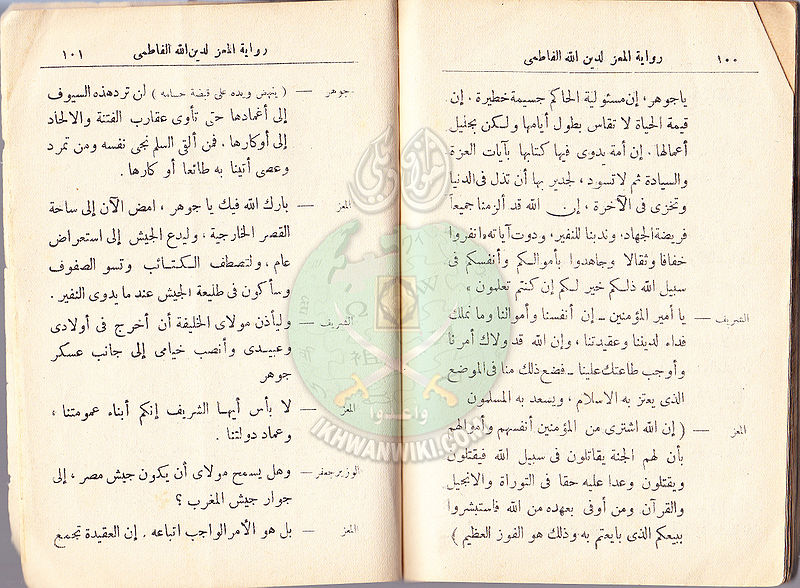 ١٠٠ رواية المعز لدين الله الفاطمى
ياجوهر، إن مسئولية الحاكم جسيمة خطيرة . إن
قيمة الحياة لا تقاس بطول أيامها ولكن بجليل
أعمالها . إن أمة يدوى فيها كتابها بآيات العزة
والسيادة ثم لا تسود، لجدير بها أن تذل فى الدنيا
وتخزى فى الآخرة، إن الله قد ألزمنا جميعاً
فريضة الجهاد. وندبنا للنفير. ودوت آياته « انفروا
خفافا وثقالا وجاهدوا بأموالكم وأنفسكم فى
سبيل الله ذلكم خير لكم إن كنتم تعلمون »
الشريف — يا أمير المؤمنين - إن أنفسنا وأموالنا وما نملك
فداء لديننا وعقيدتنا، وإن الله قد ولاك أمرنا
وأوجب طاعتك علينا - فضع ذلك منا فى الموضع
الذى يعتز به الاسلام ، ويسعد به المسلمون
المعز — ( إن الله اشترى من المؤمنين أنفسهم وأموالهم
بأن لهم الجنة يقاتلون فى سبيل الله فيقتلون
ويقتلون وعدا عليه حقا فى التوراة والانجيل
والقرآن ومن أوفى بعهده من الله فاستبشروا
ببيعكم الذى بايعتم به وذلك هو الفوز العظيم )
رواية المعز لدين الله الفاطمى ١٠١
جوهر — ( ينهض ويده على قبضة حسامه ) لن ترد هذه السيوف
إلى أغمادها حتى تأوى عقارب الفتنة والالحاد
إلى أوكارها . فمن ألقى السلم نجى نفسه ومن تمرد
وعصى أتينا به طائعا أو كارها .
المعز — بارك الله فيك يا جوهر ، امض الآن إلى ساحة
القصر الخارجية ، وليدع الجيش إلى استعراض
عام ، ولتصطف الكتائب وتسو الصفوف
وسأكون فى طليعة الجيش عند ما يدوى النفير .
الشريف — وليأذن مولاى الخليفة أن أخرج فى أولادى
وعبيدى وأنصب خيامى إلى جانب عسكر
جوهر
المعز — لا بأس أيها الشريف إنكم أبناء عمومتنا ،
وعماد دولتنا .
الوزير جعفر — وهل يسمح مولاى أن يكون جيش مصر ، إلى
جوار جيش المغرب ؟
المعز — بل هو الأمر الواجب اتباعه . إن العقيدة تجمع
وأعدوا
IKHWANWIKI.COM